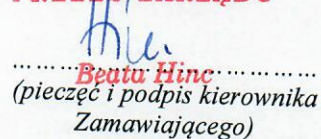 Beata Hinc
(pieczęć i podpis kierownika
Zamawiającego)